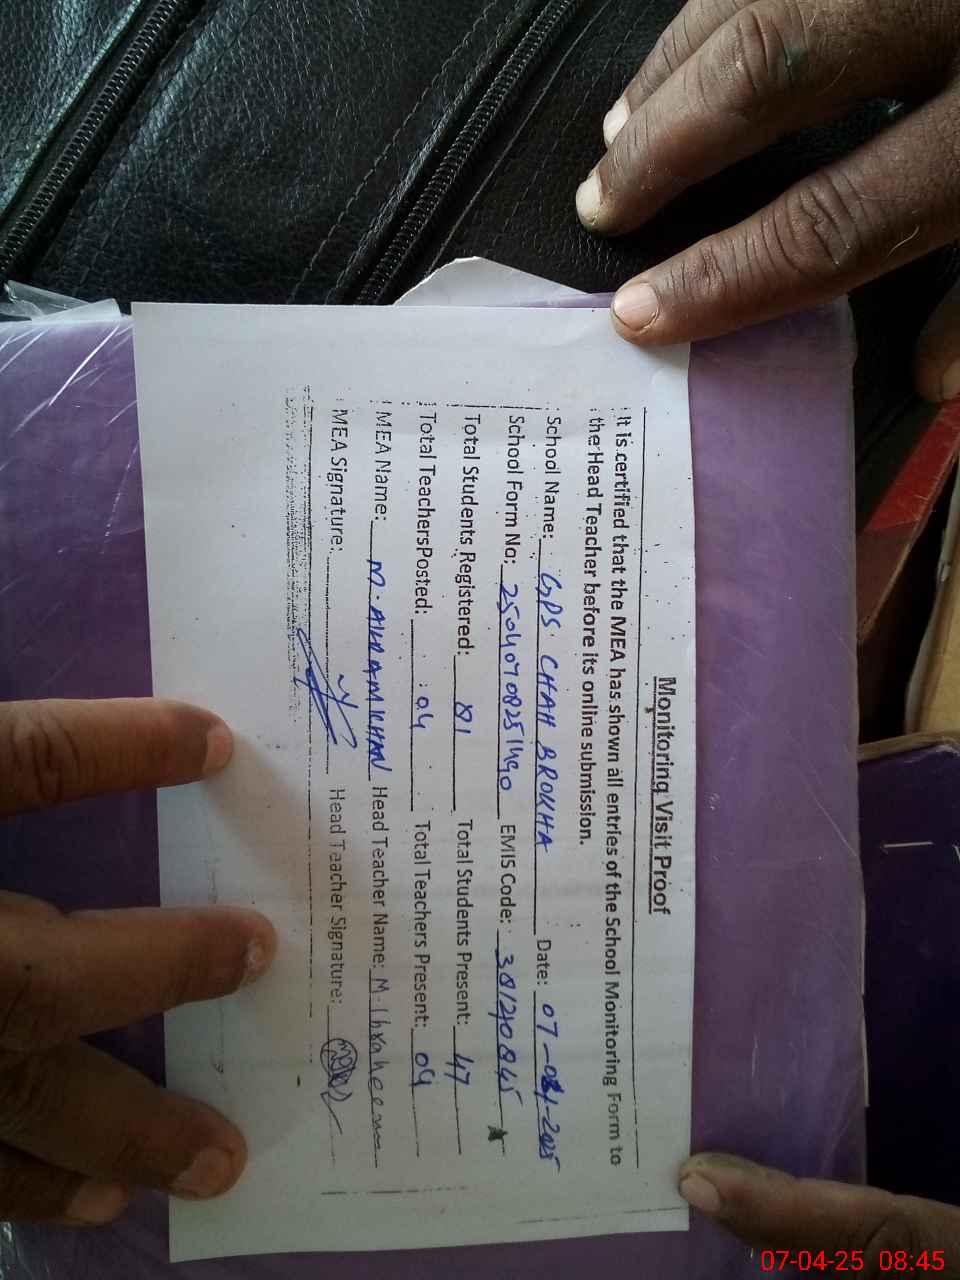 Monitoring Visit Proof
It is certified that the MEA has shown all entries of the School Monitoring Form to
the Head Teacher before its online submission.
School Name: GPS CHAH BROKHA Date: 07-04-2025
School Form No: EMIS Code:
Total Students Registered: 81 Total Students Present: 47
Total TeachersPosted: 04 Total Teachers Present: 04
MEA Name: M. AKRAM KHAN Head Teacher Name: M. Ibraheem
MEA Signature: Head Teacher Signature:
07-04-25 08:45